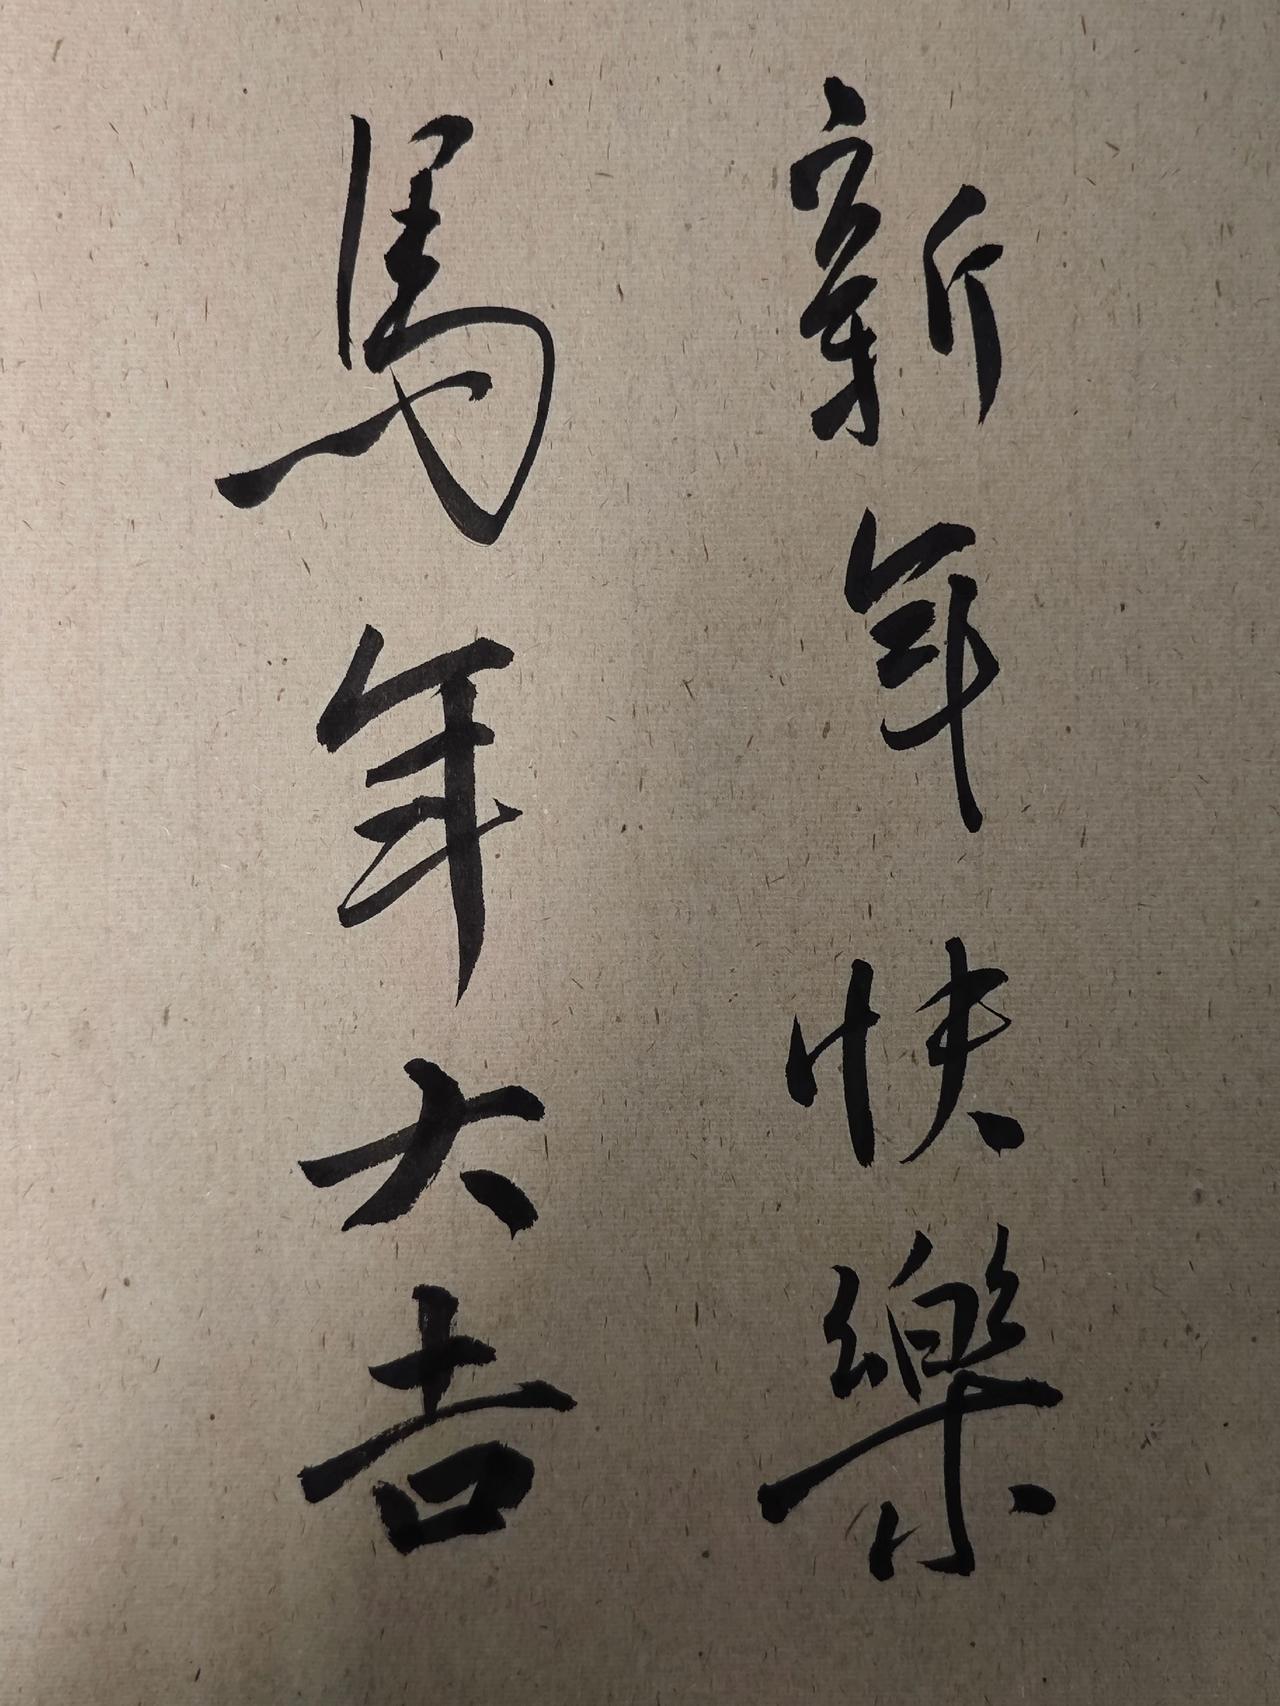 新年快樂
馬年大吉